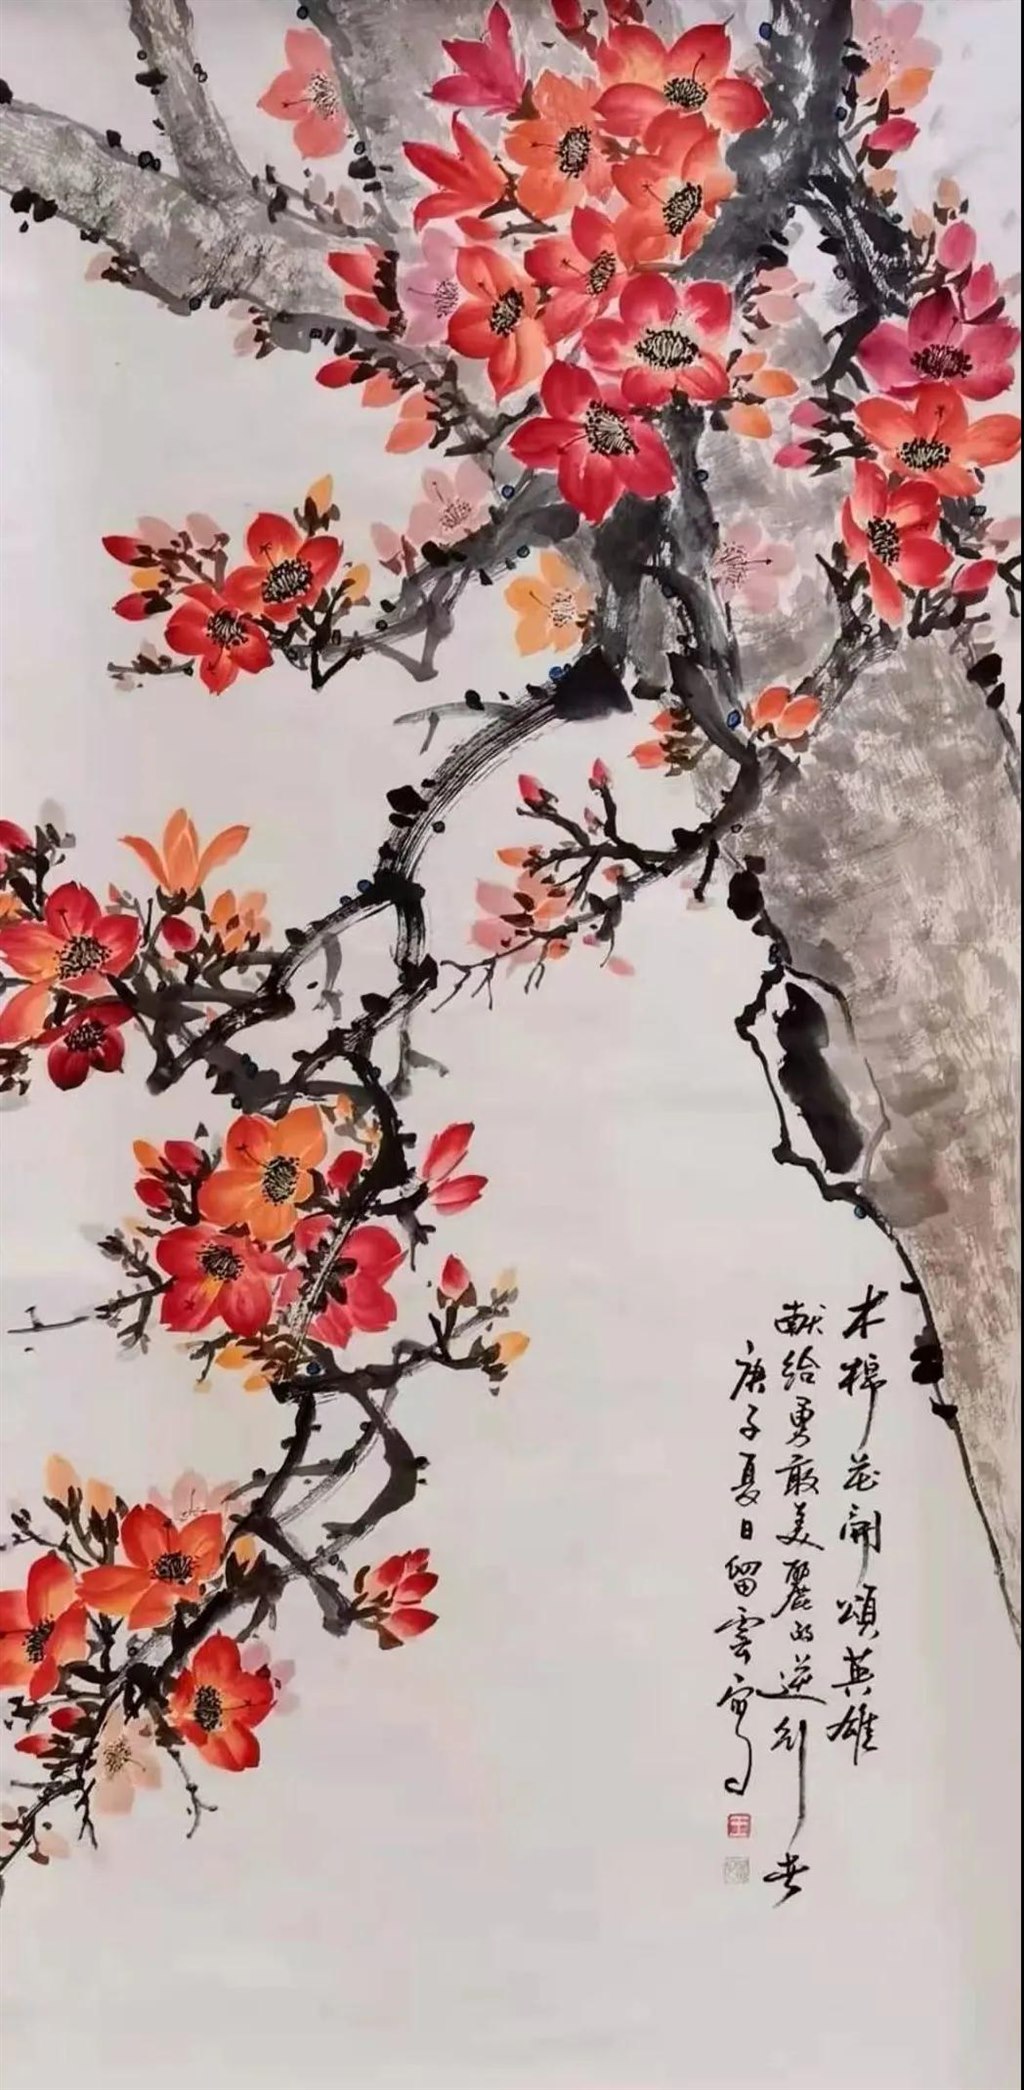 木棉花開頌英雄
献给勇敢美麗的逆行者
庚子夏日留雲寫